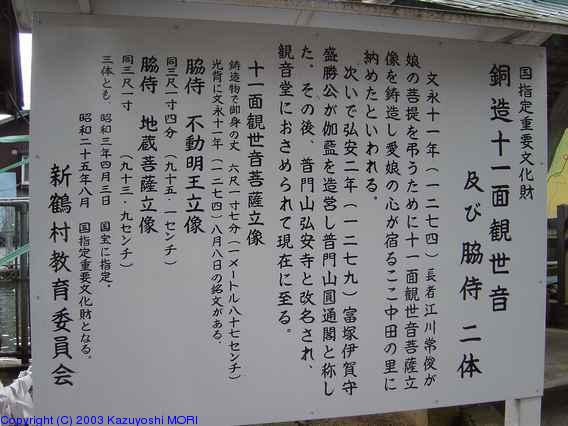 国指定重要文化財
銅造十一面観世音
及び脇侍 二体
文永十一年(一二七四)長者江川常俊が
娘の菩提を弔うために十一面観世音菩薩立
像を鋳造し愛娘の心が宿るここ中田の里に
納めたといわれる。
次いで弘安二年(一二七九)富塚伊賀守
盛勝公が伽藍を造営し普門山圓通閣と称し
た。その後、普門山弘安寺と改名され、
観音堂におさめられて現在に至る。
十一面観世音菩薩立像
鋳造物で御身の丈 六尺一寸七分(一メートル八十七センチ)
光背に文永十一年(一二七四)八月八日の銘文がある。
脇侍 不動明王立像
同三尺一寸四分 (九十五・一センチ)
脇侍 地蔵菩薩立像
同三尺一寸 (九十三・九センチ)
三体とも、昭和三年四月三日 国宝に指定。
昭和二十五年八月 国指定重要文化財となる。
新鶴村教育委員会
Copyright (C) 2003 Kazuyoshi MORI